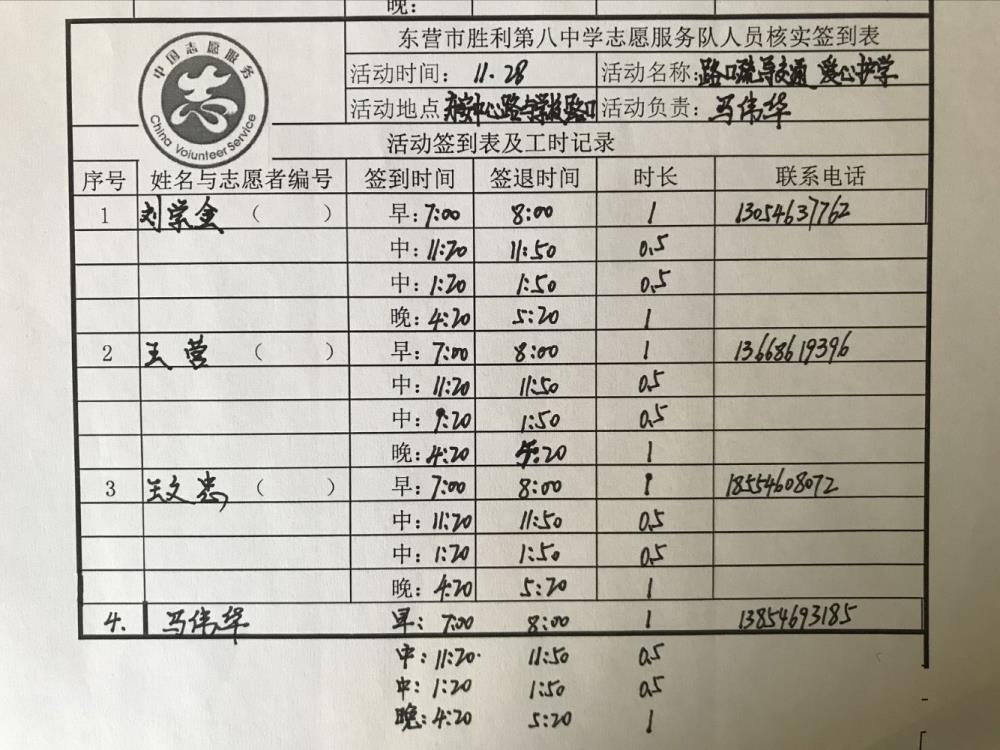 晚:
东营市胜利第八中学志愿服务队人员核实签到表
中国志愿服务
志
China Volunteer Service
活动时间: 11.28 活动名称: 路口疏导交通 爱心护学
活动地点 中心路与学校路口 活动负责: 马伟华
活动签到表及工时记录
序号 姓名与志愿者编号 签到时间 签退时间 时长 联系电话
1 刘学金 ( ) 早: 7:00 8:00 1 13054637762
中: 11:20 11:50 0.5
中: 1:20 1:50 0.5
晚: 4:20 5:20 1
2 王营 ( ) 早: 7:00 8:00 1 13668619396
中: 11:20 11:50 0.5
中: 1:20 1:50 0.5
晚: 4:20 5:20 1
3 王文忠 ( ) 早: 7:00 8:00 1 18554608072
中: 11:20 11:50 0.5
中: 1:20 1:50 0.5
晚: 4:20 5:20 1
4. 马伟华 早: 7:00 8:00 1 13854693185
中: 11:20 11:50 0.5
中: 1:20 1:50 0.5
晚: 4:20 5:20 1